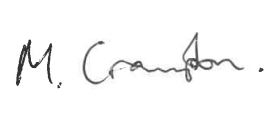 M. Crampton.